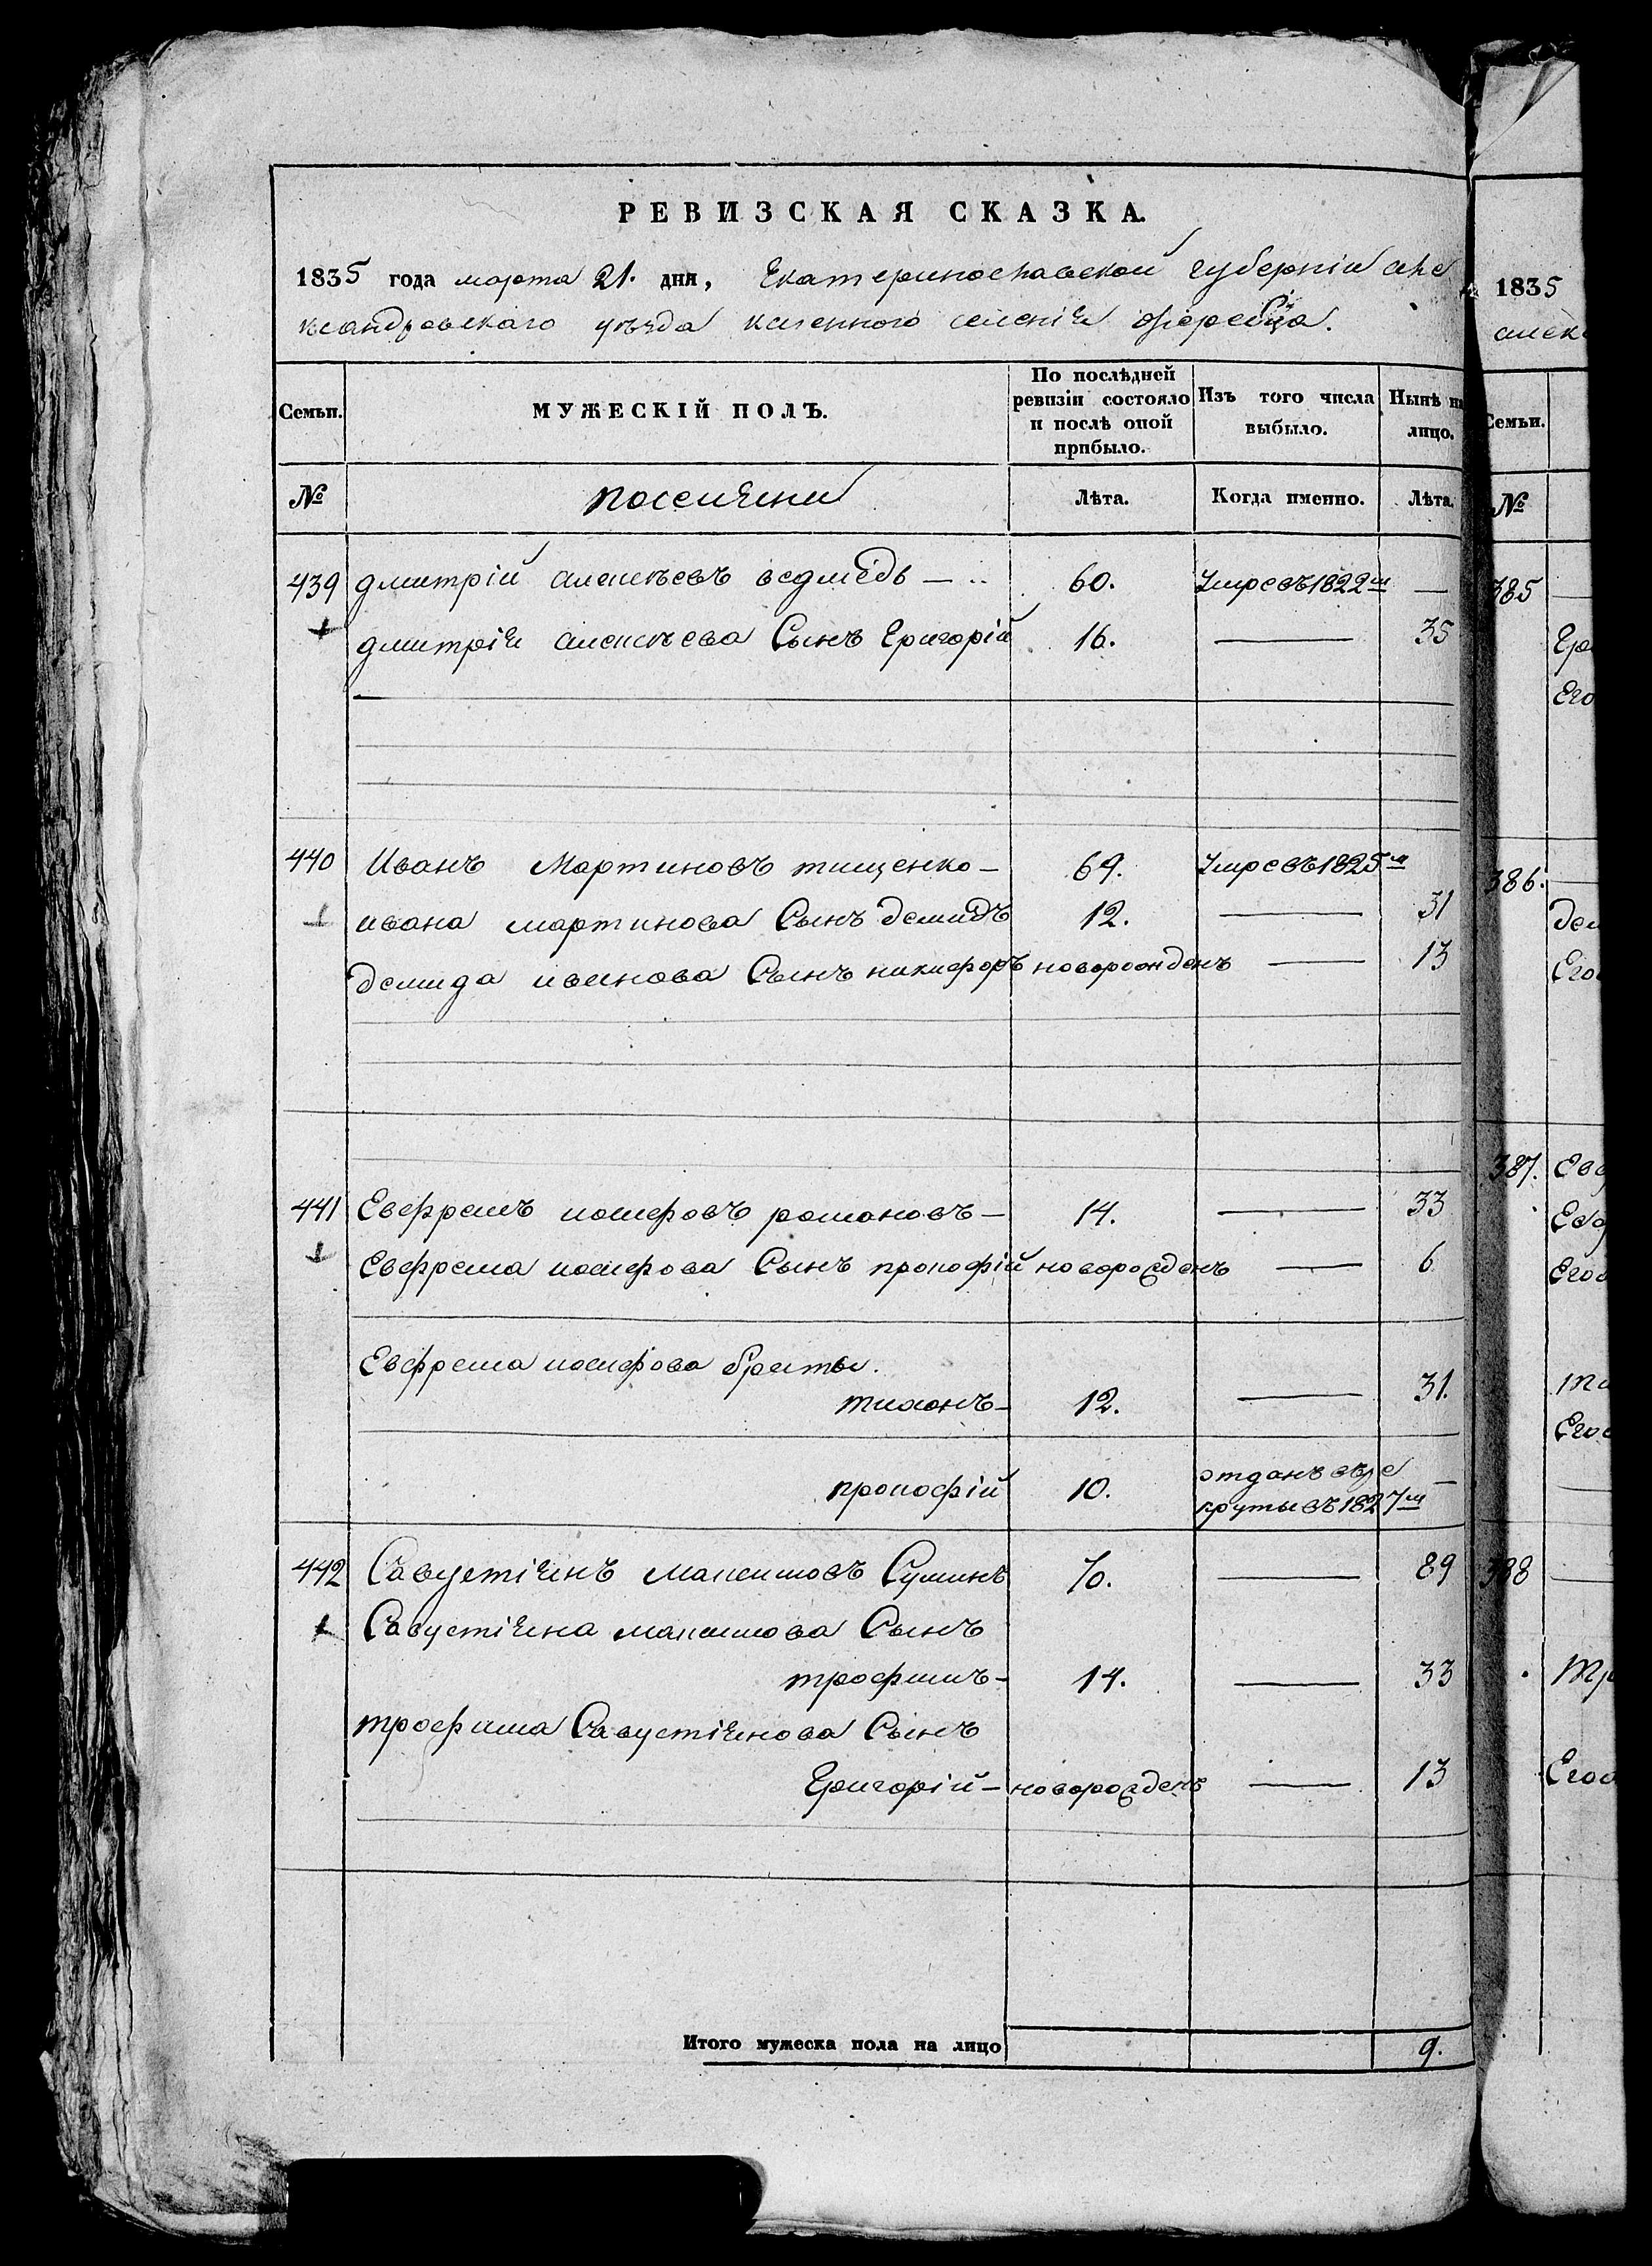 РЕВИЗСКАЯ СКАЗКА.
1835 года марта 21. дня, Екатеринославской губерніи Але
ксандровскаго уѣзда казенного селенія
Семьи. МУЖЕСКІЙ ПОЛЪ. По послѣдней ревизіи состояло и послѣ оной прибыло. Изъ того числа выбыло. Нынѣ на лицо.
№ Лѣта. Когда именно. Лѣта.
439 дмитрій алексѣевъ ведмѣдь — 60. Умре въ 1822м —
дмитрія алексѣева Сынъ Григорій 16. — 35
440 Иванъ Мартиновъ тищенко — 69. Умре въ 1825м
ивана мартинова Сынъ демидъ 12. — 31
демида иванова Сынъ никифоръ новорожденъ — 13
441 Евфремъ иосифовъ романовъ — 14. — 33
Евфрема иосифова Сынъ прокофій новорожденъ — 6
Евфрема иосифова браты.
тихонъ — 12. — 31.
прокофій 10. отданъ въ ре
круты въ 1827м —
442 Савустіянъ максимовъ Сушинъ 70. — 89
Савустіяна максимова Сынъ
трофимъ — 14. — 33
трофима Савустіянова Сынъ
Григорій — новорожденъ — 13
Итого мужеска пола на лицо 9.
1835
алекс
Семьи.
№
385
Его
386.
дем
Его
387. Евф
Евф
Его
Его
388
Тр
Его